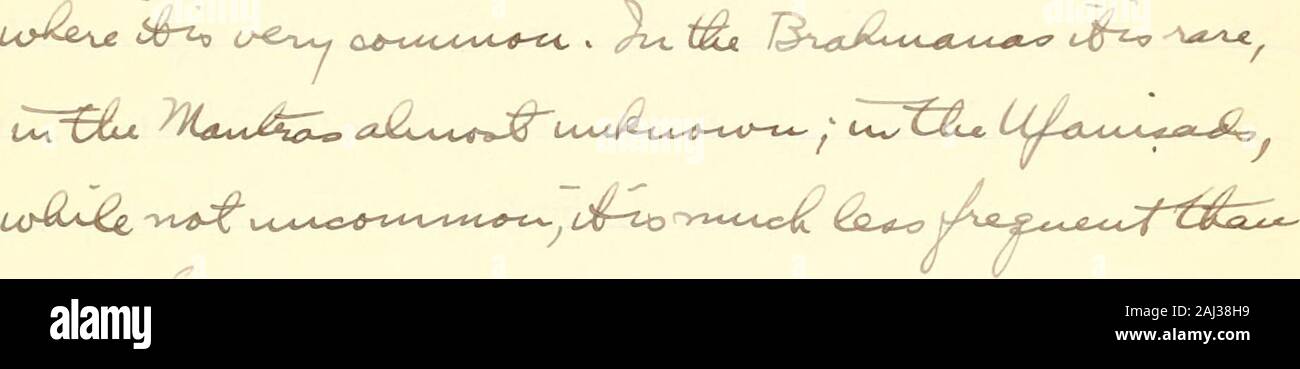 where it is very common. In the Brahmanas it is rare,
in the Mantras almost unknown; in the Upaniṣads,
while not uncommon, it is much less frequent than
alamy
Image ID: 2AJ38H9
www.alamy.com